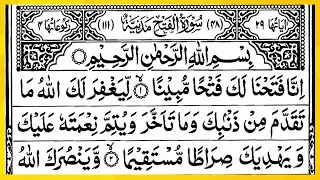 اٰیَاتُهَا ٢٩ (٤٨) سُوْرَةُ الْفَتْحِ مَدَنِیَّةٌ (١١١) رُكُوْعَاتُهَا ٤
بِسْمِ اللّٰهِ الرَّحْمٰنِ الرَّحِیْمِ
اِنَّا فَتَحْنَا لَكَ فَتْحًا مُّبِیْنًا ۙ﴿١﴾ لِّیَغْفِرَ لَكَ اللّٰهُ مَا
تَقَدَّمَ مِنْ ذَنْۢبِكَ وَمَا تَاَخَّرَ وَیُتِمَّ نِعْمَتَهٗ عَلَیْكَ
وَیَهْدِیَكَ صِرَاطًا مُّسْتَقِیْمًا ۙ﴿٢﴾ وَّیَنْصُرَكَ اللّٰهُ